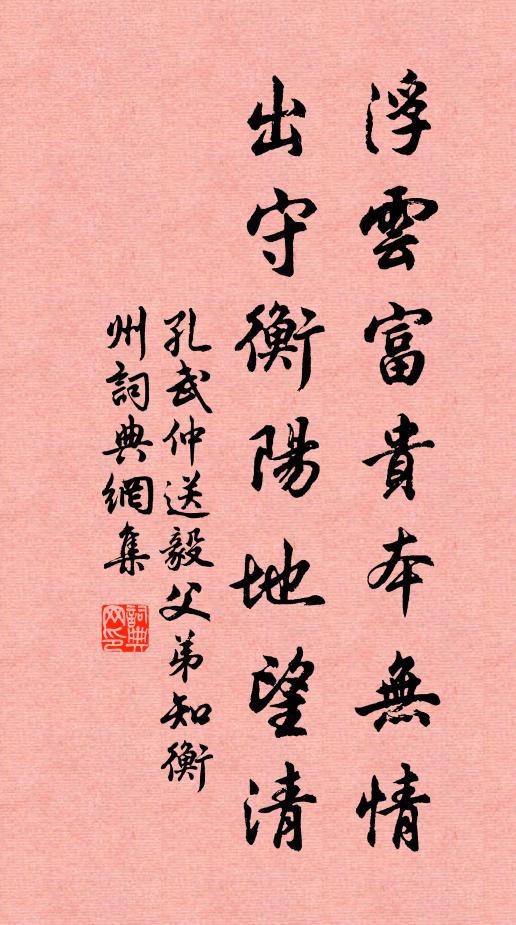 浮雲富貴本無情
出守衡陽地望清
孔武仲送毅父弟知衡
州詞典網集
詞典网印